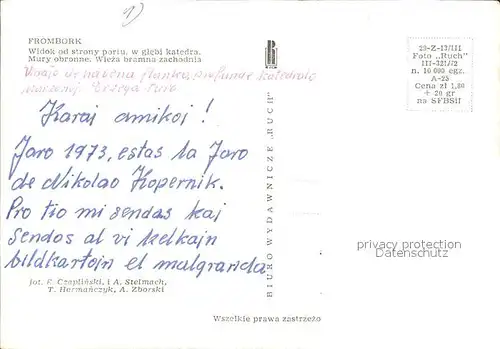 1)
FROMBORK
Widok od strony portu, w głębi katedra.
Mury obronne. Wieża bramna zachodnia
Vidaĵo de havena flanko, profunde katedralo
Karaj amikoj!
Jaro 1973, estas la Jaro
de Nikolao Kopernik.
Pro tio mi sendas kaj
sendos al vi kelkajn
bildkartojn el malgranda
fot. F. Czapliński, i A. Stelmach,
T. Hermańczyk, A. Zborski
BIURO WYDAWNICZE „RUCH"
Wszelkie prawa zastrzeżo
29-Z-13/III
Foto „Ruch"
III-321/72
n. 10 000 egz.
A-25
Cena zł 1,80
+ 20 gr
na SFBSiI
privacy protection
Datenschutz